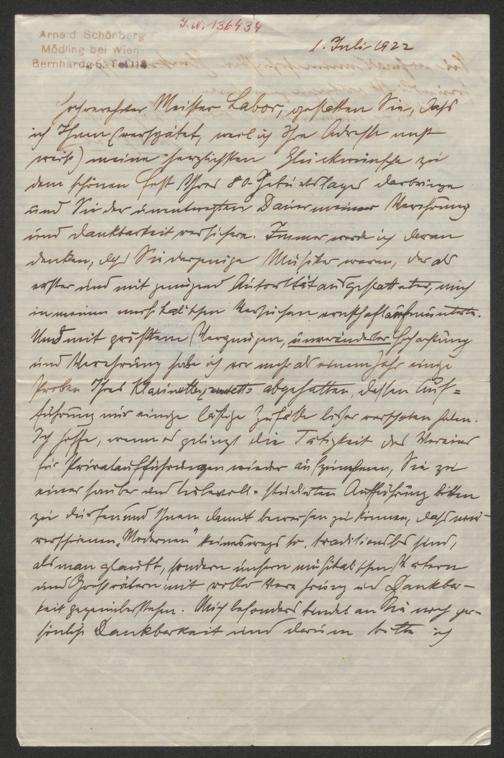 J.N. 136434
Arnold Schönberg
Mödling bei Wien
Bernhardg. 6. Tel. 118
1. Juli 1922
Hochverehrter Meister Labor, gestatten Sie, dass
ich Ihnen (verspätet, weil ich Ihre Adresse nicht
weiß) meine herzlichsten Glückwünsche zu
dem schönen Fest Ihres 80. Geburtstages darbringe
und Sie der unentwegten Dauer meiner Verehrung
und Dankbarkeit versichere. Immer werde ich daran
denken, daß Sie derjenige Musiker waren, der als
erster und mit genügend Autorität ausgestatteter, mich
in meinen musikalischen Versuchen ernsthaft aufmunterte.
Und mit größtem Vergnügen, unveränderter Hochachtung
und Verehrung habe ich vor mehr als einem Jahr einige
Proben Ihres Klarinettenquintetts abgehalten, dessen Auf-
führung nur einige lästige Zufälle bisher verschoben haben.
Ich hoffe, wenn es gelingt die Tätigkeit des Vereins
für Privataufführungen wieder aufzunehmen, Sie zu
einer sauber und liebevoll studierten Aufführung bitten
zu dürfen und Ihnen damit beweisen zu können, daß wir
verschrieenen "Modernen" keineswegs so traditionslos sind,
als man glaubt, sondern unsern musikalischen Vätern
und Großvätern mit voller Verehrung und Dankbar-
keit gegenüberstehen. Mich besonders bindet an Sie noch per-
sönliche Dankbarkeit und darum bitte ich